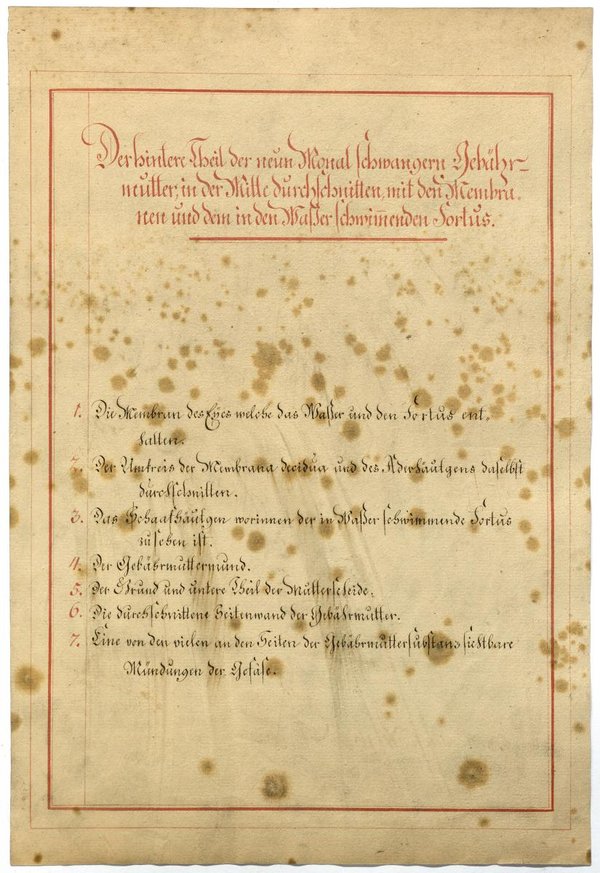 Der hintere Theil der neun Monat schwangern Gebähr-
mutter, in der Mitte durchschnitten, mit den Membra-
nen und dem in den Waßer schwim̅enden Foetus.
1. Die Membran des Eyes welche das Waßer und den Foetus ent-
halten.
2. Der Umkreis der Membrana decidua und des Aderhäutgens daselbst
durchschnitten.
3. Das Schaafhäutgen worinnen der in Waßer schwimmende Foetus
zu sehen ist.
4. Der Gebährmuttermund.
5. Der Grund und untere Theil der Mutterscheide.
6. Die durchschnittene Seitenwand der Gebährmutter.
7. Eine von den vielen an den Seiten der Gebährmuttersubstans sichtbare
Mündungen der Gefäse.